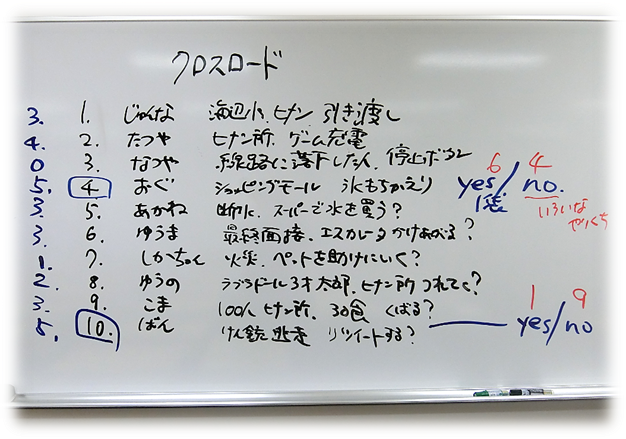 クロスロード
3. 1. じゅんな 海辺小、ヒナン 引き渡し
4. 2. たつや ヒナン所、ゲーム充電
0 3. なつや 線路に落下した人、停止ボタン
5. 4. おぐ ショッピングモール 氷もちかえり 6 yes / 4 no.
1袋 いろいな やりくち
3. 5. あかね 断水、スーパーで水を買う?
3. 6. ゆうま 最終面接、エスカレータかけあがる?
1. 7. しかちゃん 火災、ペットを助けにいく?
2. 8. ゆうの ラブラドール3才太郎、ヒナン所つれてく?
3. 9. こま 100人ヒナン所、30食 くばる?
5. 10. ばん けん銃逃走 リツイートする? 1 yes / 9 no